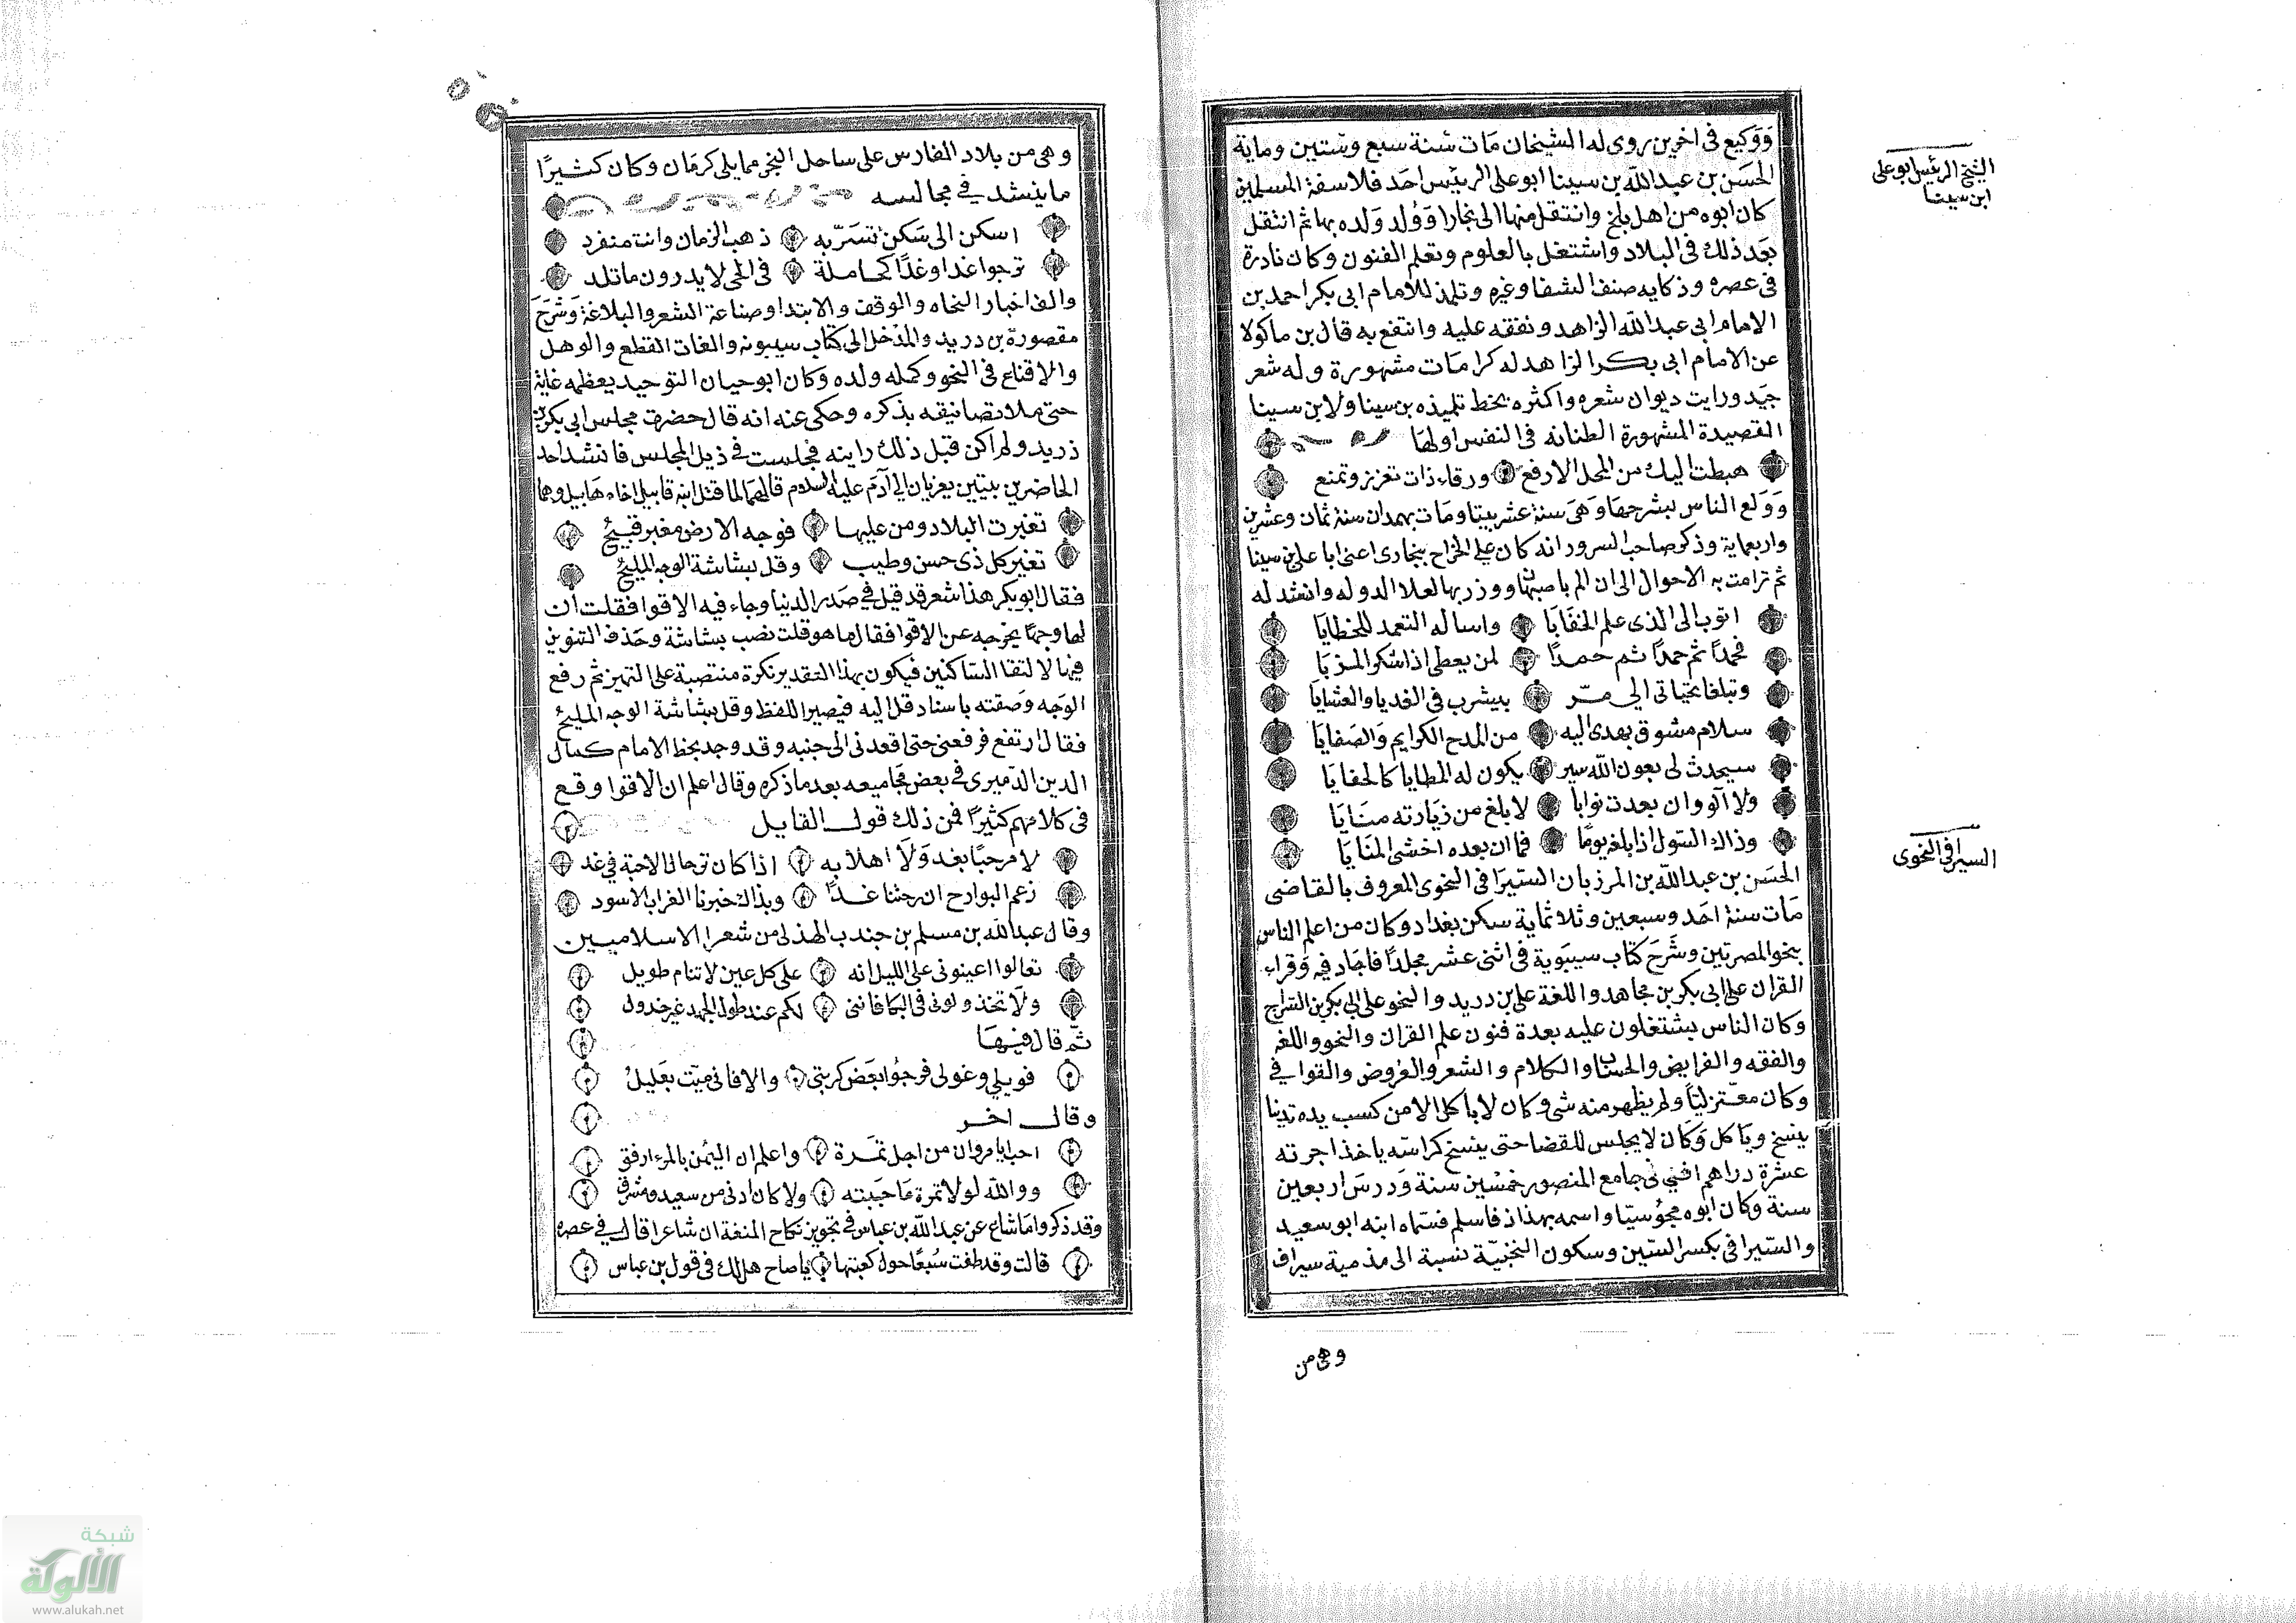 ووكيع في اخرين روى له الشيخان مات سنة سبع وستين وماية
الحسن بن عبد الله بن سينا ابو على الرئيس احد فلاسفة المسلمين
كان ابوه من اهل بلخ وانتقل منها الى بخارا وولد ولده بها ثم انتقل
بعد ذلك في البلاد واشتغل بالعلوم وتعلم الفنون وكان نادرة
في عصره وذكايه صنف الشفا وغيره وتلمذ للامام ابى بكر احمد بن
الامام ابى عبد الله الزاهد وتفقه عليه وانتفع به قال بن ماكولا
عن الامام ابى بكر الزاهد له كرامات مشهورة وله شعر
جيد ورايت ديوان شعره واكثره بخط تلميذه بن سينا ولابن سينا
القصيدة المشهورة الطنانه في النفس اولها
هبطت اليك من المحل الارفع ورقاء ذات تعزز وتمنع
وولع الناس بشرحها وهى ستة عشر بيتا ومات بهمدان سنة ثمان وعشرين
واربعماية وذكر صاحب السرور انه كان على الخراج ببخارى اعنى ابا على بن سينا
ثم ترامت به الاحوال الى ان الم باصبهان ووزر بها لعلا الدوله وانشد له
اتوب الى الذى علم الخفايا واساله التغمد للخطايا
فحمدا ثم حمدا ثم حمدا لمن يعطى اذا شكر المزيا
وتبلغا تحياتى الى بيثرب في الغديا والعشايا
سلام مشوق يهدى اليه من المدح الكرايم والصفايا
سيحدث لى بعون الله سير يكون له المطايا كالحفايا
ولا آلو وان بعدت نوايا لابلغ من زيارته منايا
وذاك السول اذا بلغه يوما فما ان بعده اخشى المنايا
الحسن بن عبد الله بن المرزبان السيرافى النحوى المعروف بالقاضى
مات سنة احد وسبعين وثلاثماية سكن بغداد وكان من اعلم الناس
بنحو المصرتين وشرح كتاب سيبوية في اثنى عشر مجلدا فاجاد فيه وقراء
القران على ابى بكر بن مجاهد واللغة على بن دريد والنحو على ابى بكر بن السراج
وكان الناس يشتغلون عليه بعدة فنون علم القران والنحو واللغه
والفقه والفرايض والحساب والكلام والشعر والعروض والقوافي
وكان معتزليا ولم يظهر منه شى وكان لا ياكل الا من كسب يده تدينا
ينسخ وياكل وكان لا يجلس للقضا حتى ينسخ كراسه ياخذ اجرته
عشرة دراهم افتى في جامع المنصور خمسين سنة ودرس اربعين
سنة وكان ابوه مجوسيا واسمه بهذاذ فاسلم فسماه ابنه ابو سعيد
والسيرافى بكسر السين وسكون التحتية نسبة الى سيراف
وهى من
الشيخ الرئيس ابو على
ابن سينا
السيرافى النحوى
وهى من بلاد الفارس على ساحل البحر مما يلى كرمان وكان كثيرا
ما ينشد في مجالسه
اسكن الى سكن تسر به ذهب الزمان وانت منفرد
ترجوا غدا وغدا كحاملة في الحى لا يدرون ما تلد
والف اخبار النحاه والوقف والابتدا وصناعة الشعر والبلاغة وشرح
مقصورة بن دريد والمدخل الى كتاب سيبويه والفات القطع والوصل
والاقناع في النحو وكمله ولده وكان ابو حيان التوحيد يعظمه غاية
حتى ملا تصانيفه بذكره وحكى عنه انه قال حضرت مجلس ابى بكر بن
دريد ولم اكن قبل ذلك رايته فجلست في ذيل المجلس فانشد احد
الحاضرين بيتين يعزيان الى آدم عليه السلام قالهما لما قتل ابنه قابيل اخاه هابيل وهما
تغيرت البلاد ومن عليها فوجه الارض مغبر قبيح
تغير كل ذى حسن وطيب وقل بشاشة الوجه المليح
فقال ابو بكر هذا شعر قد قيل في صدر الدنيا وجاء فيه الاقوا فقلت ان
لها وجها يخرجه عن الاقوا فقال ما هو قلت نصب بشاشة وحذف التنوين
فيها لالتقا الساكنين فيكون بهذا التقدير نكرة منتصبة على التميز ثم رفع
الوجه وصفته باسناد قل اليه فيصير اللفظ وقل بشاشة الوجه المليح
فقال ارتفع فرفعنى حتى اقعدنى الى جنبه وقد وجد بخط الامام كمال
الدين الدميرى في بعض مجاميعه بعد ما ذكره وقال اعلم ان الاقوا وقع
في كلامهم كثيرا فمن ذلك قول القايل
لا مرحبا بغد ولا اهلا به اذا كان ترحال الاحبة في غد
زعم البوارح ان رحلتنا غدا وبذاك خبرنا الغراب الاسود
وقال عبد الله بن مسلم بن جندب الهذلى من شعرا الاسلاميين
تعالوا اعينونى على الليل انه على كل عين لا تنام طويل
ولا تخذلونى في البكا فاننى لكم عند طول الجهد غير خذول
ثم قال فيها
فويلى وعولى فرجوا بعض كربتى والا فانى ميت بغليل
وقال اخر
احب ابا مروان من اجل تمرة واعلم ان اليمن بالمرء ارفق
ووالله لولا تمرة ما حببته ولا كان ادنى من سعيد ومشرق
وقد ذكروا ما شاع عن عبد الله بن عباس في تجويز نكاح المتعة ان شاعرا قال في عصره
قالت وقد طفت سبعا حول كعبتها ياصاح هل لك في قول بن عباس
شبكة
الألوكة
www.alukah.net